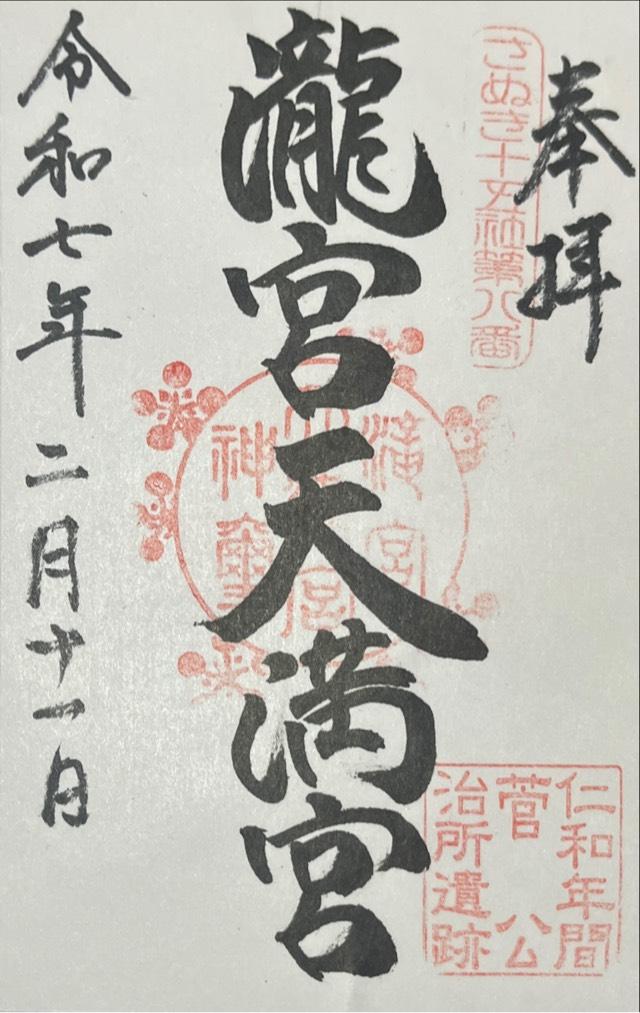 奉拝
さぬき十五社第八番
瀧宮天満宮
仁和年間
菅公
治所遺跡
令和七年二月十一日